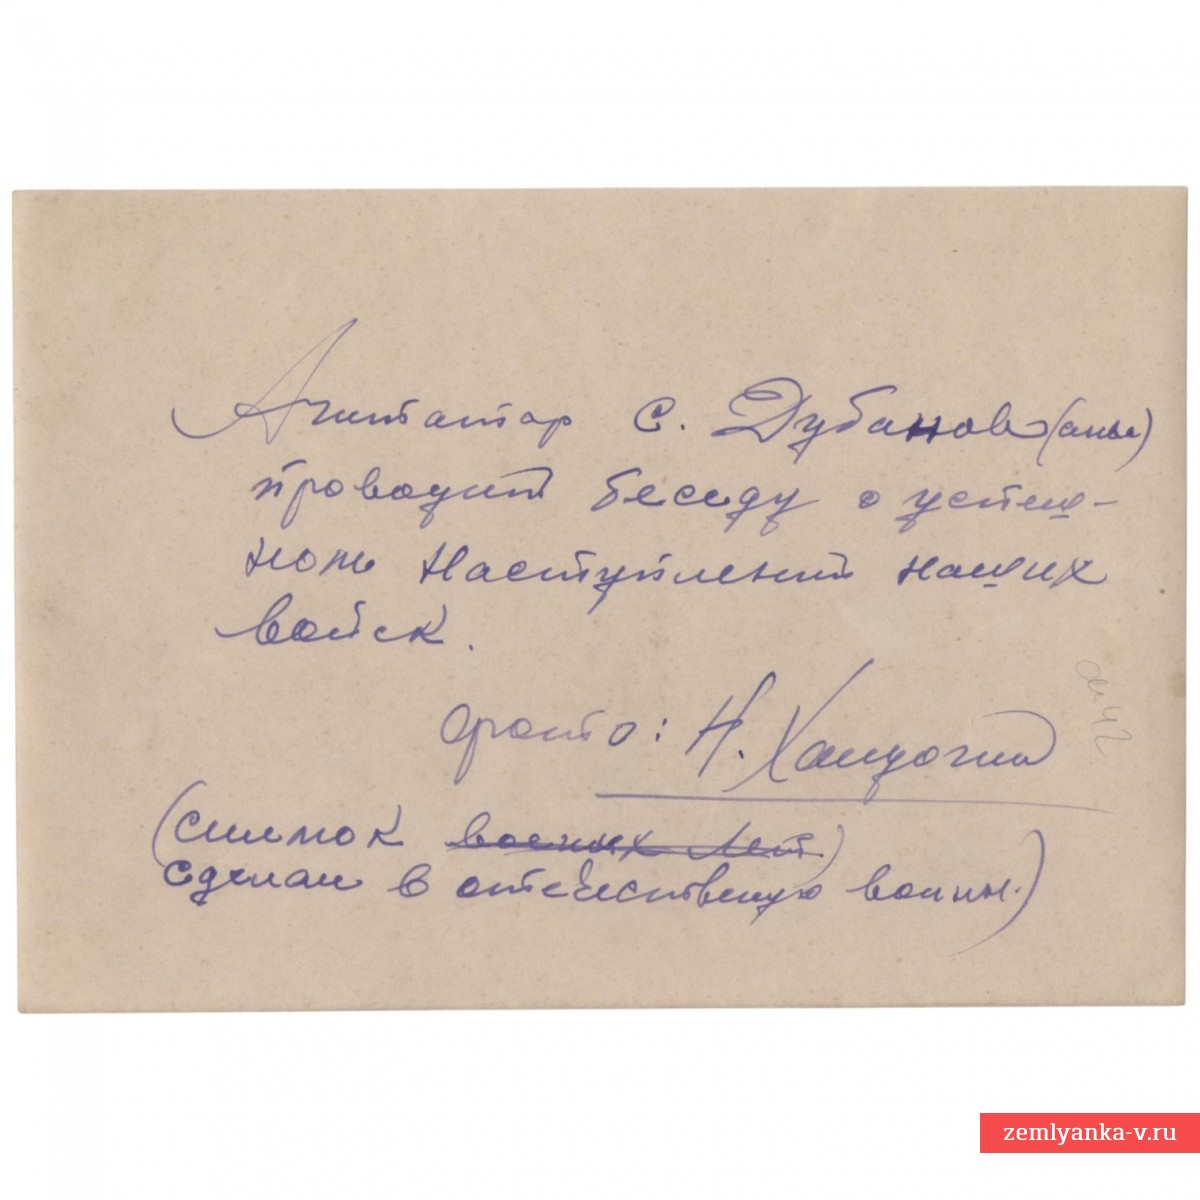 Агитатор С. Дубанов
проводит беседу о успеш-
ном наступлении наших
войск.
фото: Н. Хандогин
(снимок военных лет)
сделан в отечественую воины.)
zemlyanka-v.ru